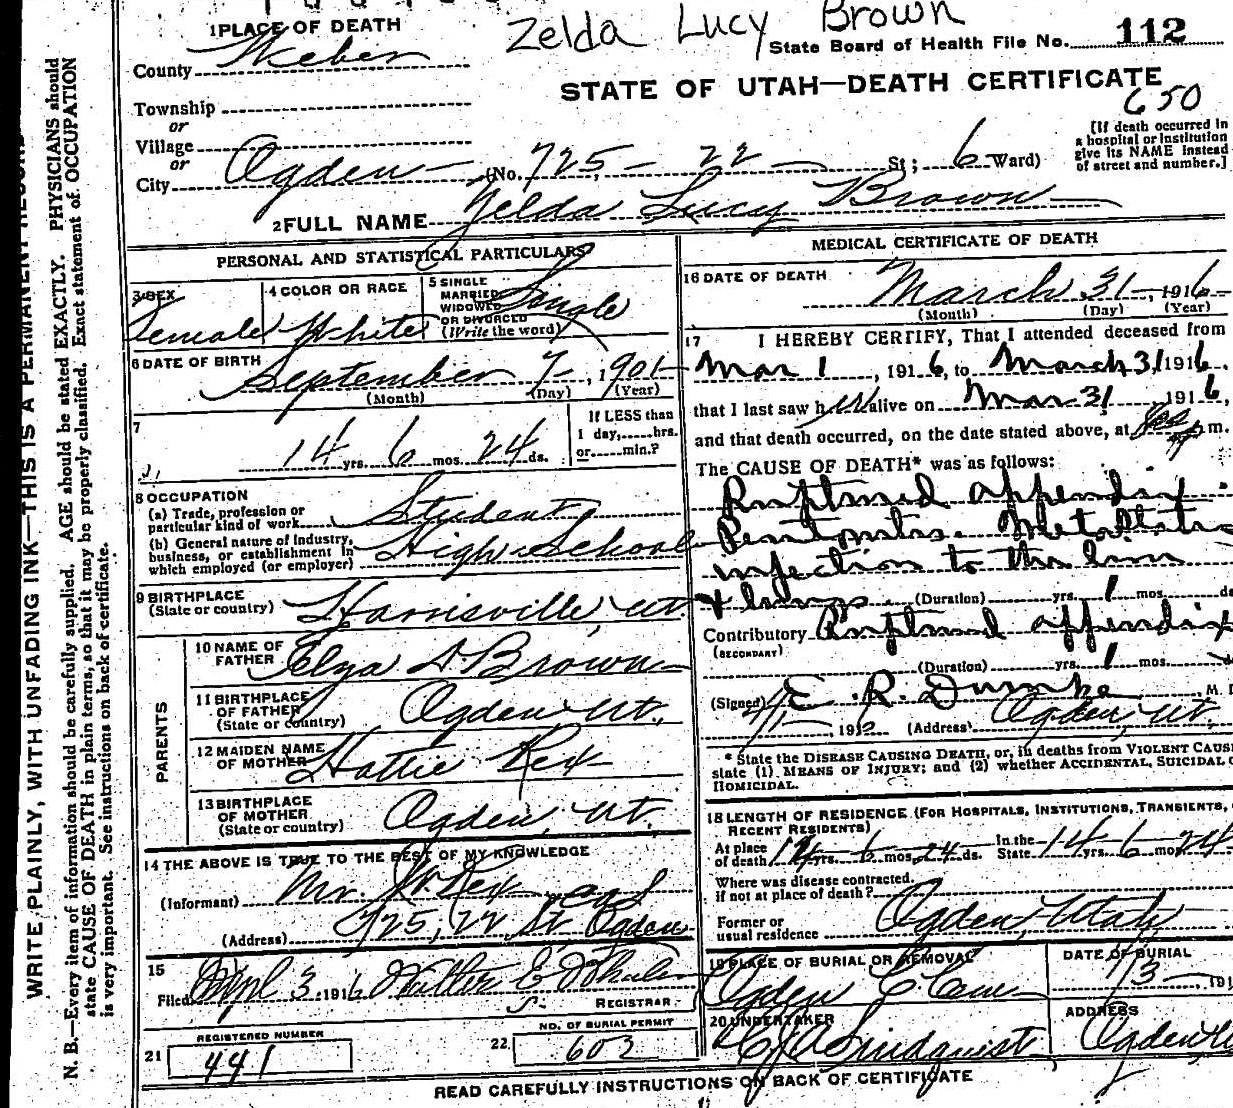 Zelda Lucy Brown
1 PLACE OF DEATH
County Weber
State Board of Health File No. 112
STATE OF UTAH—DEATH CERTIFICATE
650
Township
or
Village
or
City Ogden (No. 725, 22 St; 6 Ward)
[If death occurred in
a hospital or institution
give its NAME instead
of street and number.]
2 FULL NAME Zelda Lucy Brown
PERSONAL AND STATISTICAL PARTICULARS
3 SEX
Female
4 COLOR OR RACE
White
5 SINGLE
MARRIED
WIDOWED
OR DIVORCED
(Write the word)
Single
6 DATE OF BIRTH
September 7, 1901
(Month) (Day) (Year)
7
14 yrs. 6 mos. 24 ds.
If LESS than
1 day, hrs.
or min.?
8 OCCUPATION
(a) Trade, profession or
particular kind of work Student
(b) General nature of Industry,
business, or establishment in
which employed (or employer) High School
9 BIRTHPLACE
(State or country) Harrisville, Ut.
PARENTS
10 NAME OF
FATHER Brown
11 BIRTHPLACE
OF FATHER
(State or country) Ogden Ut.
12 MAIDEN NAME
OF MOTHER Hattie Rex
13 BIRTHPLACE
OF MOTHER
(State or country) Ogden, Ut.
14 THE ABOVE IS TRUE TO THE BEST OF MY KNOWLEDGE
(Informant) Mr. Rex
(Address) 725, 22 St Ogden
15
Filed Apl 3, 1916
REGISTRAR
REGISTERED NUMBER
21 441
NO. OF BURIAL PERMIT
22. 602
MEDICAL CERTIFICATE OF DEATH
16 DATE OF DEATH
March 31, 1916
(Month) (Day) (Year)
17 I HEREBY CERTIFY, That I attended deceased from
Mar 1, 1916, to March 31 1916.
that I last saw her alive on Mar 31, 1916,
and that death occurred, on the date stated above, at m.
The CAUSE OF DEATH* was as follows:
Ruptured appendix.
Peritonitis.
infection to the
& lungs. (Duration) yrs. 1 mos. ds
Contributory Ruptured appendix
(SECONDARY)
(Duration) yrs. 1 mos.
(Signed) E. R. Dumke, M. D
4/1, 191 (Address) Ogden, Ut.
* State the DISEASE CAUSING DEATH, or, in deaths from VIOLENT CAUS
state (1) MEANS OF INJURY; and (2) whether ACCIDENTAL, SUICIDAL O
HOMICIDAL.
18 LENGTH OF RESIDENCE (FOR HOSPITALS, INSTITUTIONS, TRANSIENTS,
RECENT RESIDENTS)
At place
of death 14 yrs. 6 mos. 24 ds. In the
State 14 yrs. 6 mos. 24
Where was disease contracted,
if not at place of death?
Former or
usual residence Ogden, Utah
19 PLACE OF BURIAL OR REMOVAL
Ogden C Cem
DATE OF BURIAL
4/3, 191
20 UNDERTAKER
Lindquist
ADDRESS
Ogden
READ CAREFULLY INSTRUCTIONS ON BACK OF CERTIFICATE
WRITE PLAINLY, WITH UNFADING INK—THIS IS A PERMANENT RECORD
N. B.—Every item of information should be carefully supplied. AGE should be stated EXACTLY. PHYSICIANS should
state CAUSE OF DEATH in plain terms, so that it may be properly classified. Exact statement of OCCUPATION
is very important. See instructions on back of certificate.